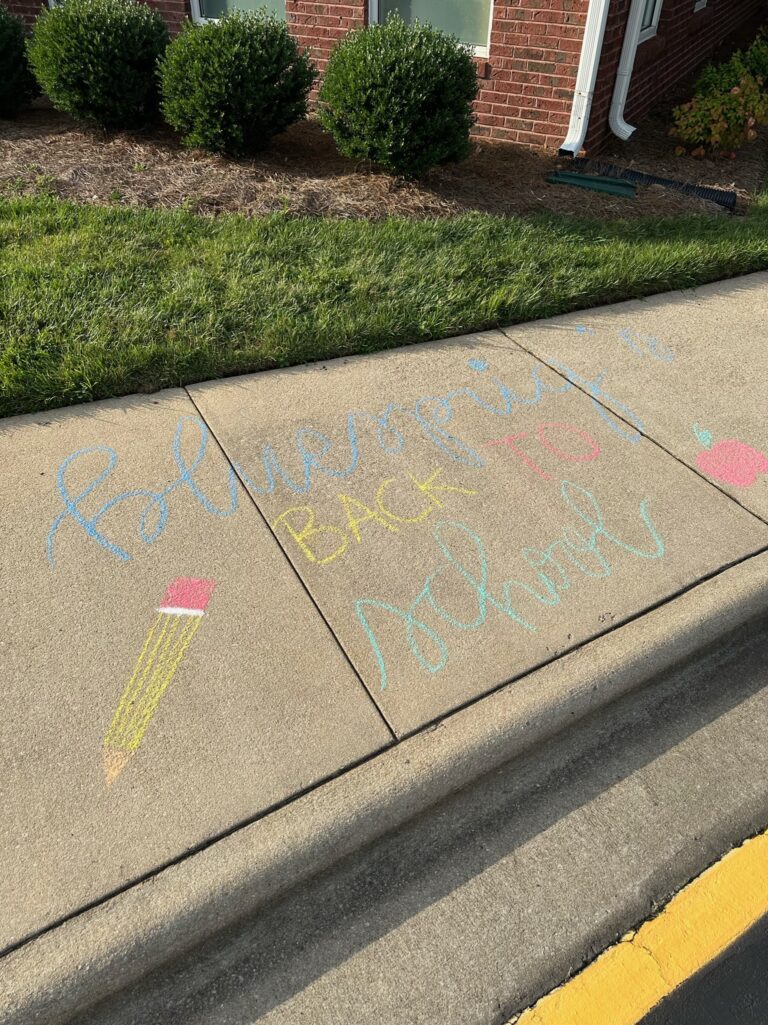 Bluesprig is
BACK TO
School